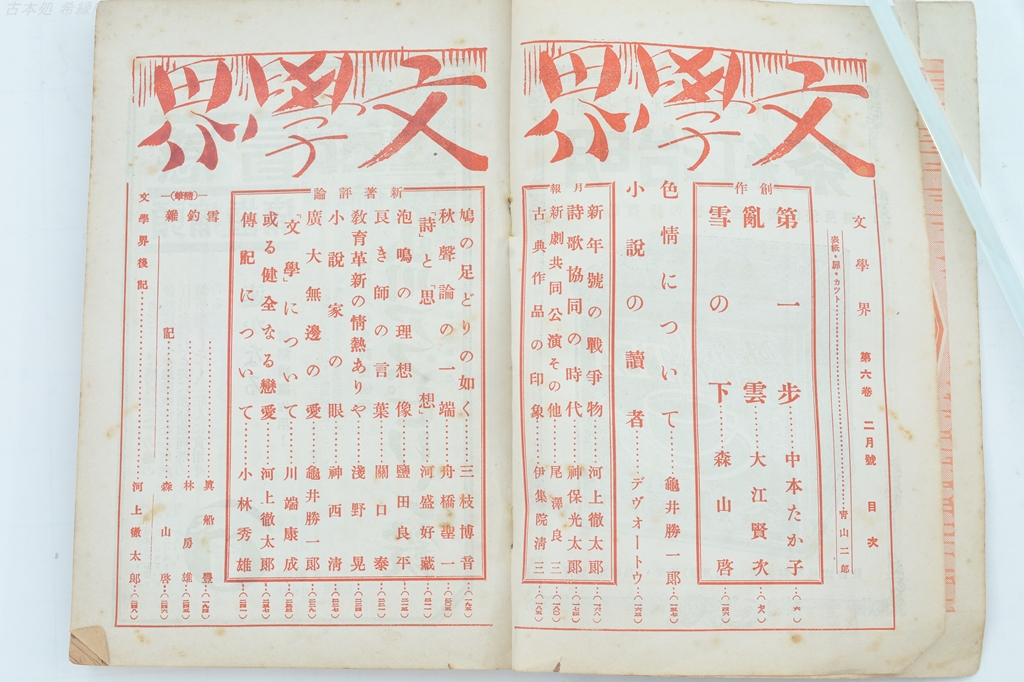 古本処
文學界
文學界 第六卷 二月號 目次
表紙・扉・カツト……青山二郎
創作
第一步……中本たか子…(六)
亂雲……大江賢次
雪の下……森山啓
色情について……龜井勝一郎
小說の讀者……デヴオートウ
月報
新年號の戰爭物……河上徹太郎
詩歌協同の時代……神保光太郎
新劇共同公演その他……尾澤良三
古典作品の印象……伊集院淸三
文學界
新著評論
鳩の足どりの如く……三枝博音
秋聲論の一端……舟橋聖一
「詩」と「思想」……河盛好藏
泡鳴の理想像……鹽田良平
良き師の言葉……關口泰
敎育革新の情熱ありや……淺野晃
小說家の眼……神西淸
廣大無邊の愛……龜井勝一郎
「文學」について……川端康成
或る健全なる戀愛……河上徹太郎
傳記について……小林秀雄
(隨筆)
雪……眞船豐
釣……林房雄
雜記……森山啓
文學界後記……河上徹太郎